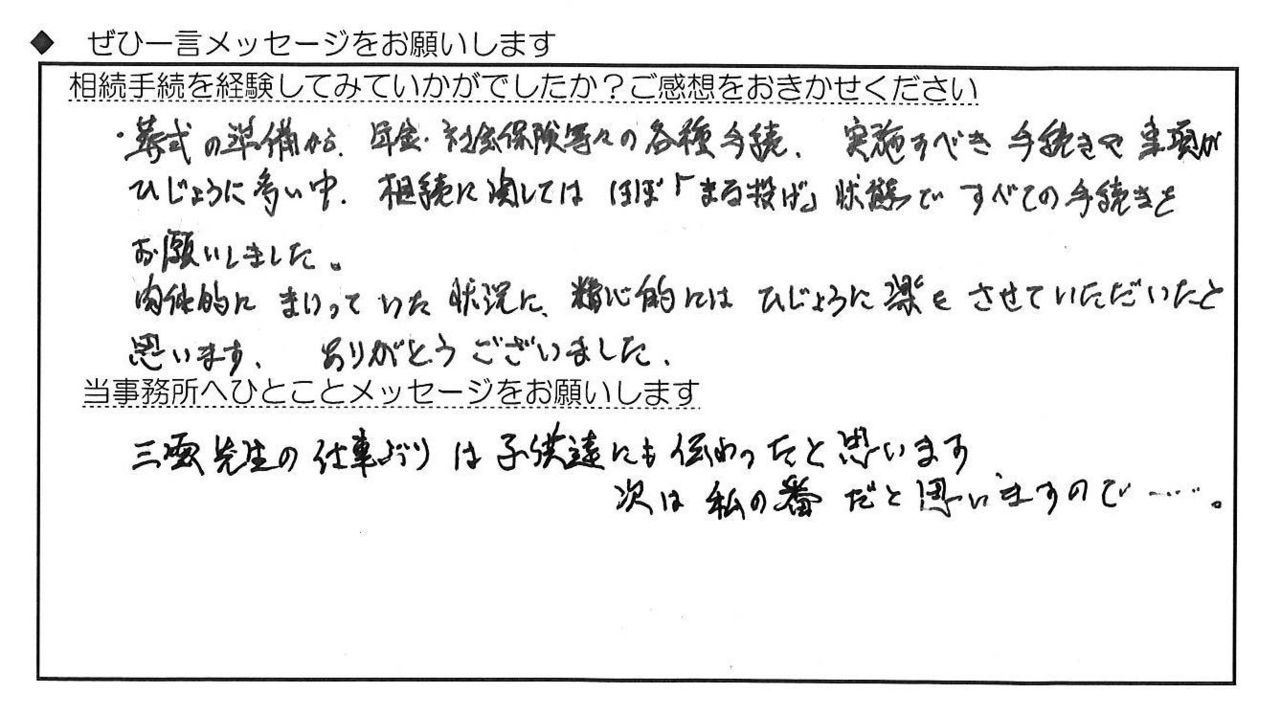 ◆ ぜひ一言メッセージをお願いします
相続手続を経験してみていかがでしたか？ご感想をおきかせください
・葬式の準備から、年金・社会保険等々の各種手続、実施すべき手続きや事項が
ひじょうに多い中、相続に関してはほぼ「まる投げ」状態ですべての手続きを
お願いしました。
肉体的にまいっていた状況に、精心的にはひじょうに楽をさせていただいたと
思います。ありがとうございました。
当事務所へひとことメッセージをお願いします
三雲先生の仕事ぶりは子供達にも伝わったと思います
次は私の番だと思いますので……。